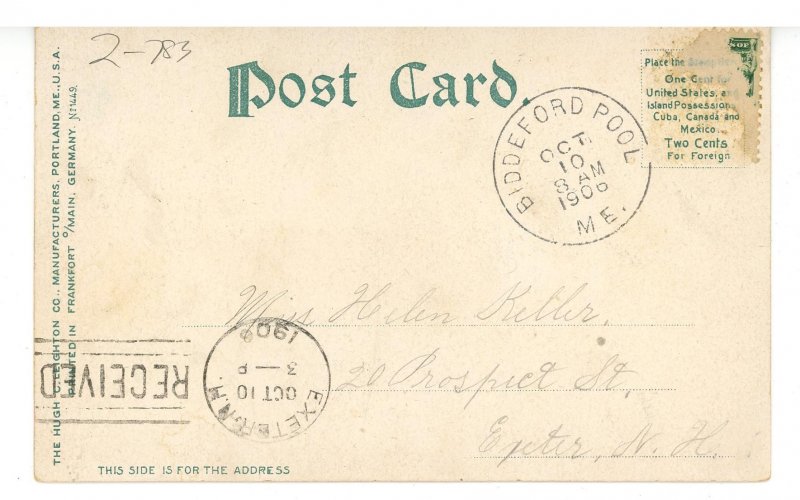 2-783
Post Card.
Place the
One Cent for
United States, and
Island Possessions
Cuba, Canada and
Mexico.
Two Cents
For Foreign
BIDDEFORD POOL
OCT
10
8 AM
1906
ME.
Miss Helen Keller,
20 Prospect St,
Exeter, N. H.
EXETER, N.H.
OCT 10
3 - P
1906
RECEIVED
THE HUGH C. LEIGHTON CO., MANUFACTURERS, PORTLAND, ME., U.S.A.
PRINTED IN FRANKFORT O/MAIN, GERMANY. No 1449.
THIS SIDE IS FOR THE ADDRESS